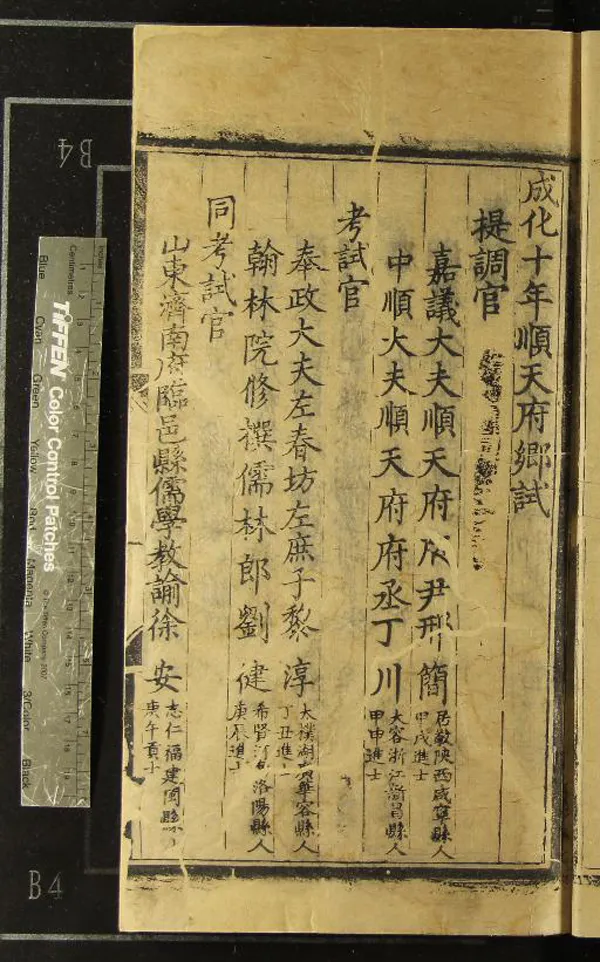 成化十年順天府鄉試
提調官
嘉議大夫順天府府尹邢簡
居敬陝西咸寧縣人
甲戌進士
中順大夫順天府府丞丁川
大容浙江新昌縣人
甲申進士
考試官
奉政大夫左春坊左庶子黎淳
太樸湖廣華容縣人
丁丑進士
翰林院修撰儒林郎劉健
希賢河南洛陽縣人
庚辰進士
同考試官
山東濟南府臨邑縣儒學教諭徐安
志仁福建閩縣人
庚午貢士
B4
B4
Inches
Centimetres
TIFFEN Color Control Patches
© The Tiffen Company, 2007
Blue
Cyan
Green
Yellow
Red
Magenta
White
3/Color
Black